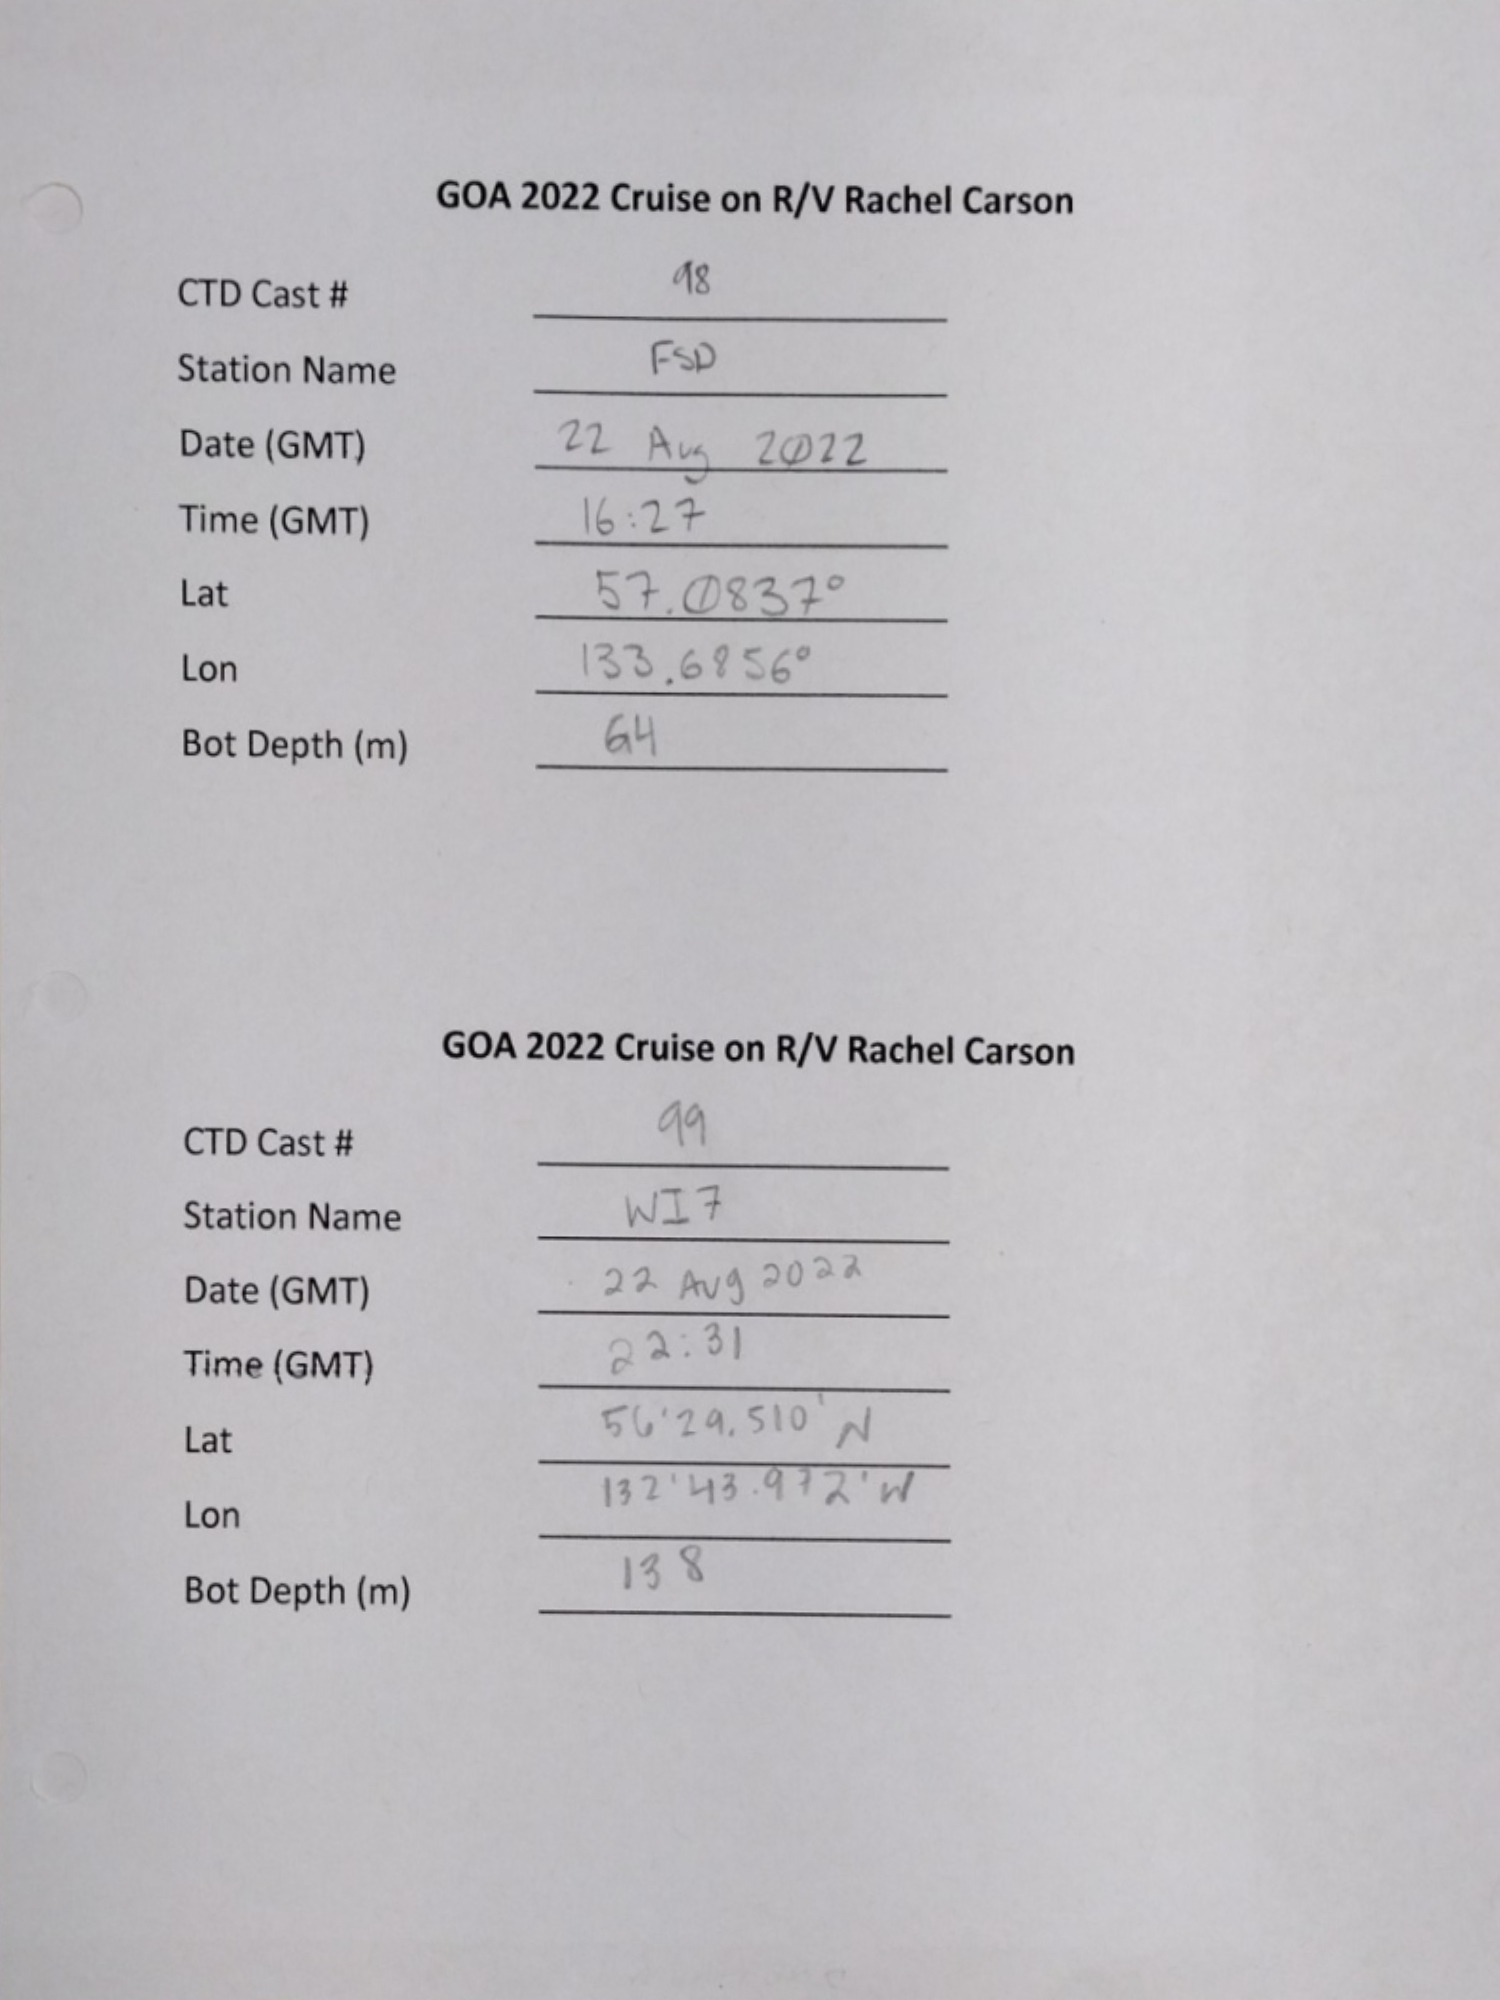 GOA 2022 Cruise on R/V Rachel Carson
CTD Cast # 98
Station Name FSD
Date (GMT) 22 Aug 2022
Time (GMT) 16:27
Lat 57.0837°
Lon 133.6856°
Bot Depth (m) 64
GOA 2022 Cruise on R/V Rachel Carson
CTD Cast # 99
Station Name WI7
Date (GMT) 22 Aug 2022
Time (GMT) 22:31
Lat 56'29.510' N
Lon 132'43.972' W
Bot Depth (m) 138